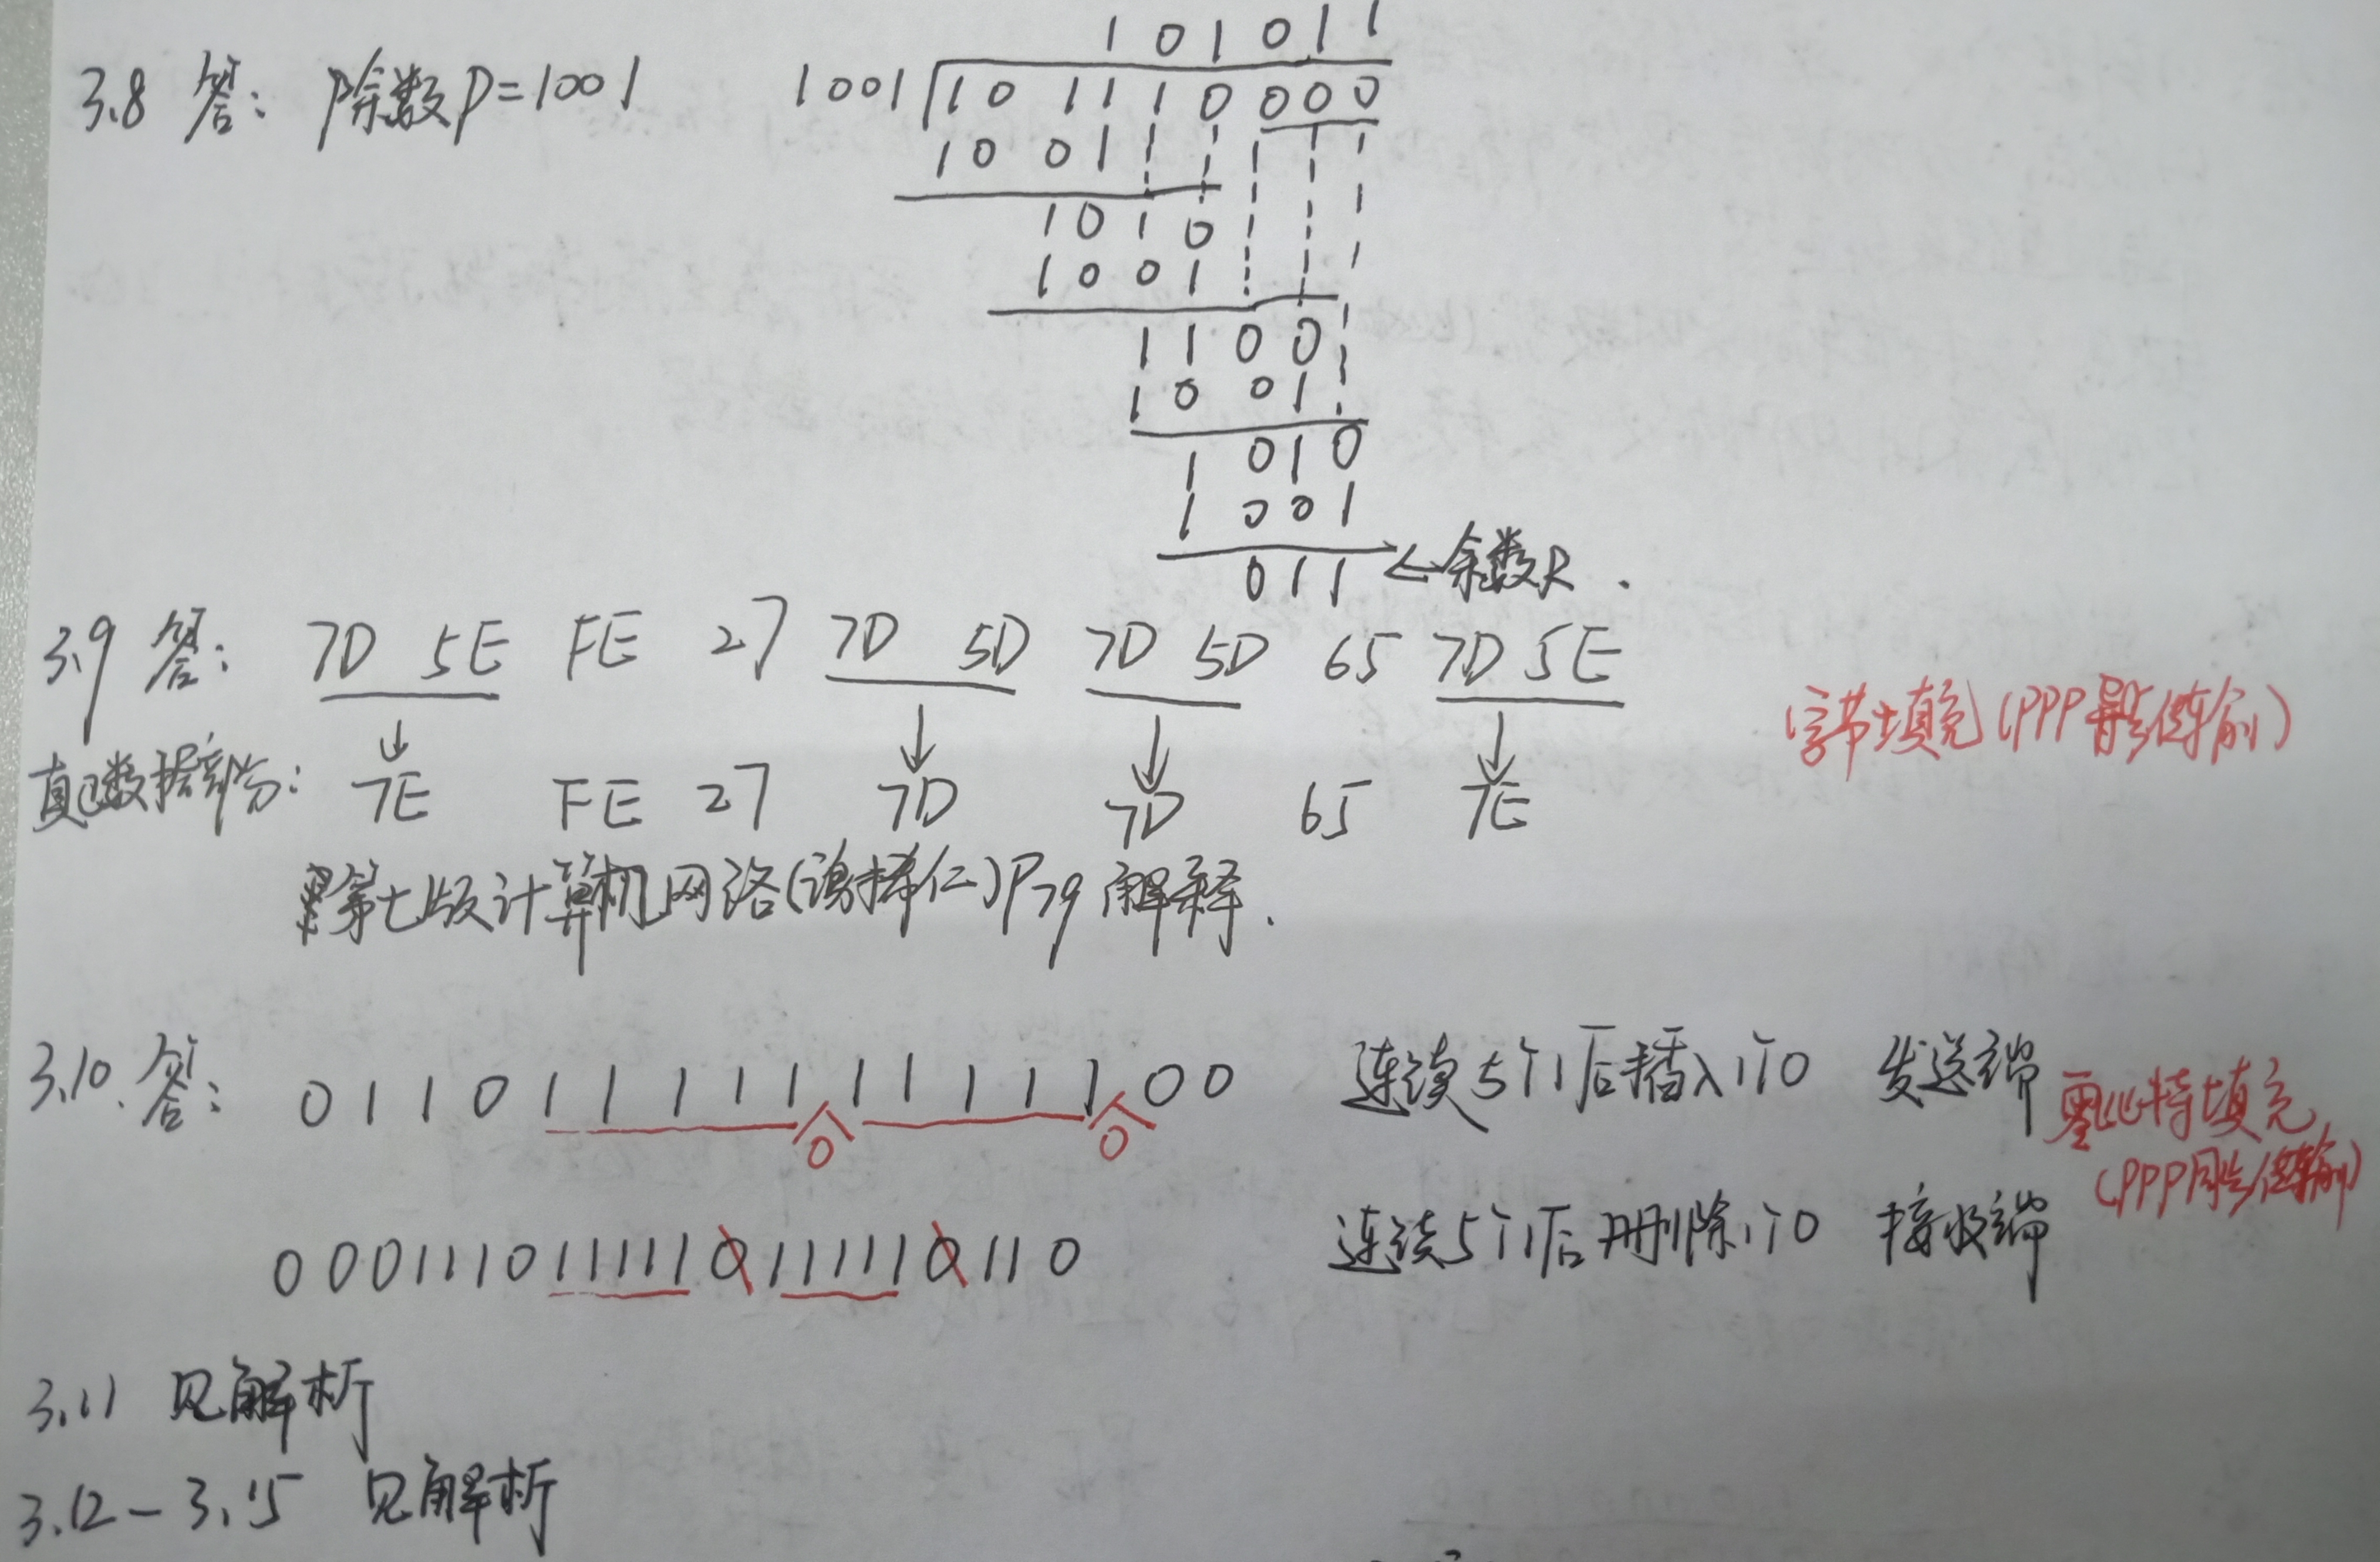 101011
3.8 答: 除数P=1001 1001 101110000
1001
1010
1001
1100
1001
1010
1001
011 ←余数R.
3.9 答: 7D 5E FE 27 7D 5D 7D 5D 65 7D 5E
字节填充(PPP异步传输)
真正数据部分: 7E FE 27 7D 7D 65 7E
第七版计算机网络(谢希仁)P79解释.
3.10.答: 0110111111111100 连续5个1后插入1个0 发送端
0 0
零比特填充
(PPP同步传输)
0001110111110111110110 连续5个1后删除1个0 接收端
3.11 见解析
3.12-3.15 见解析